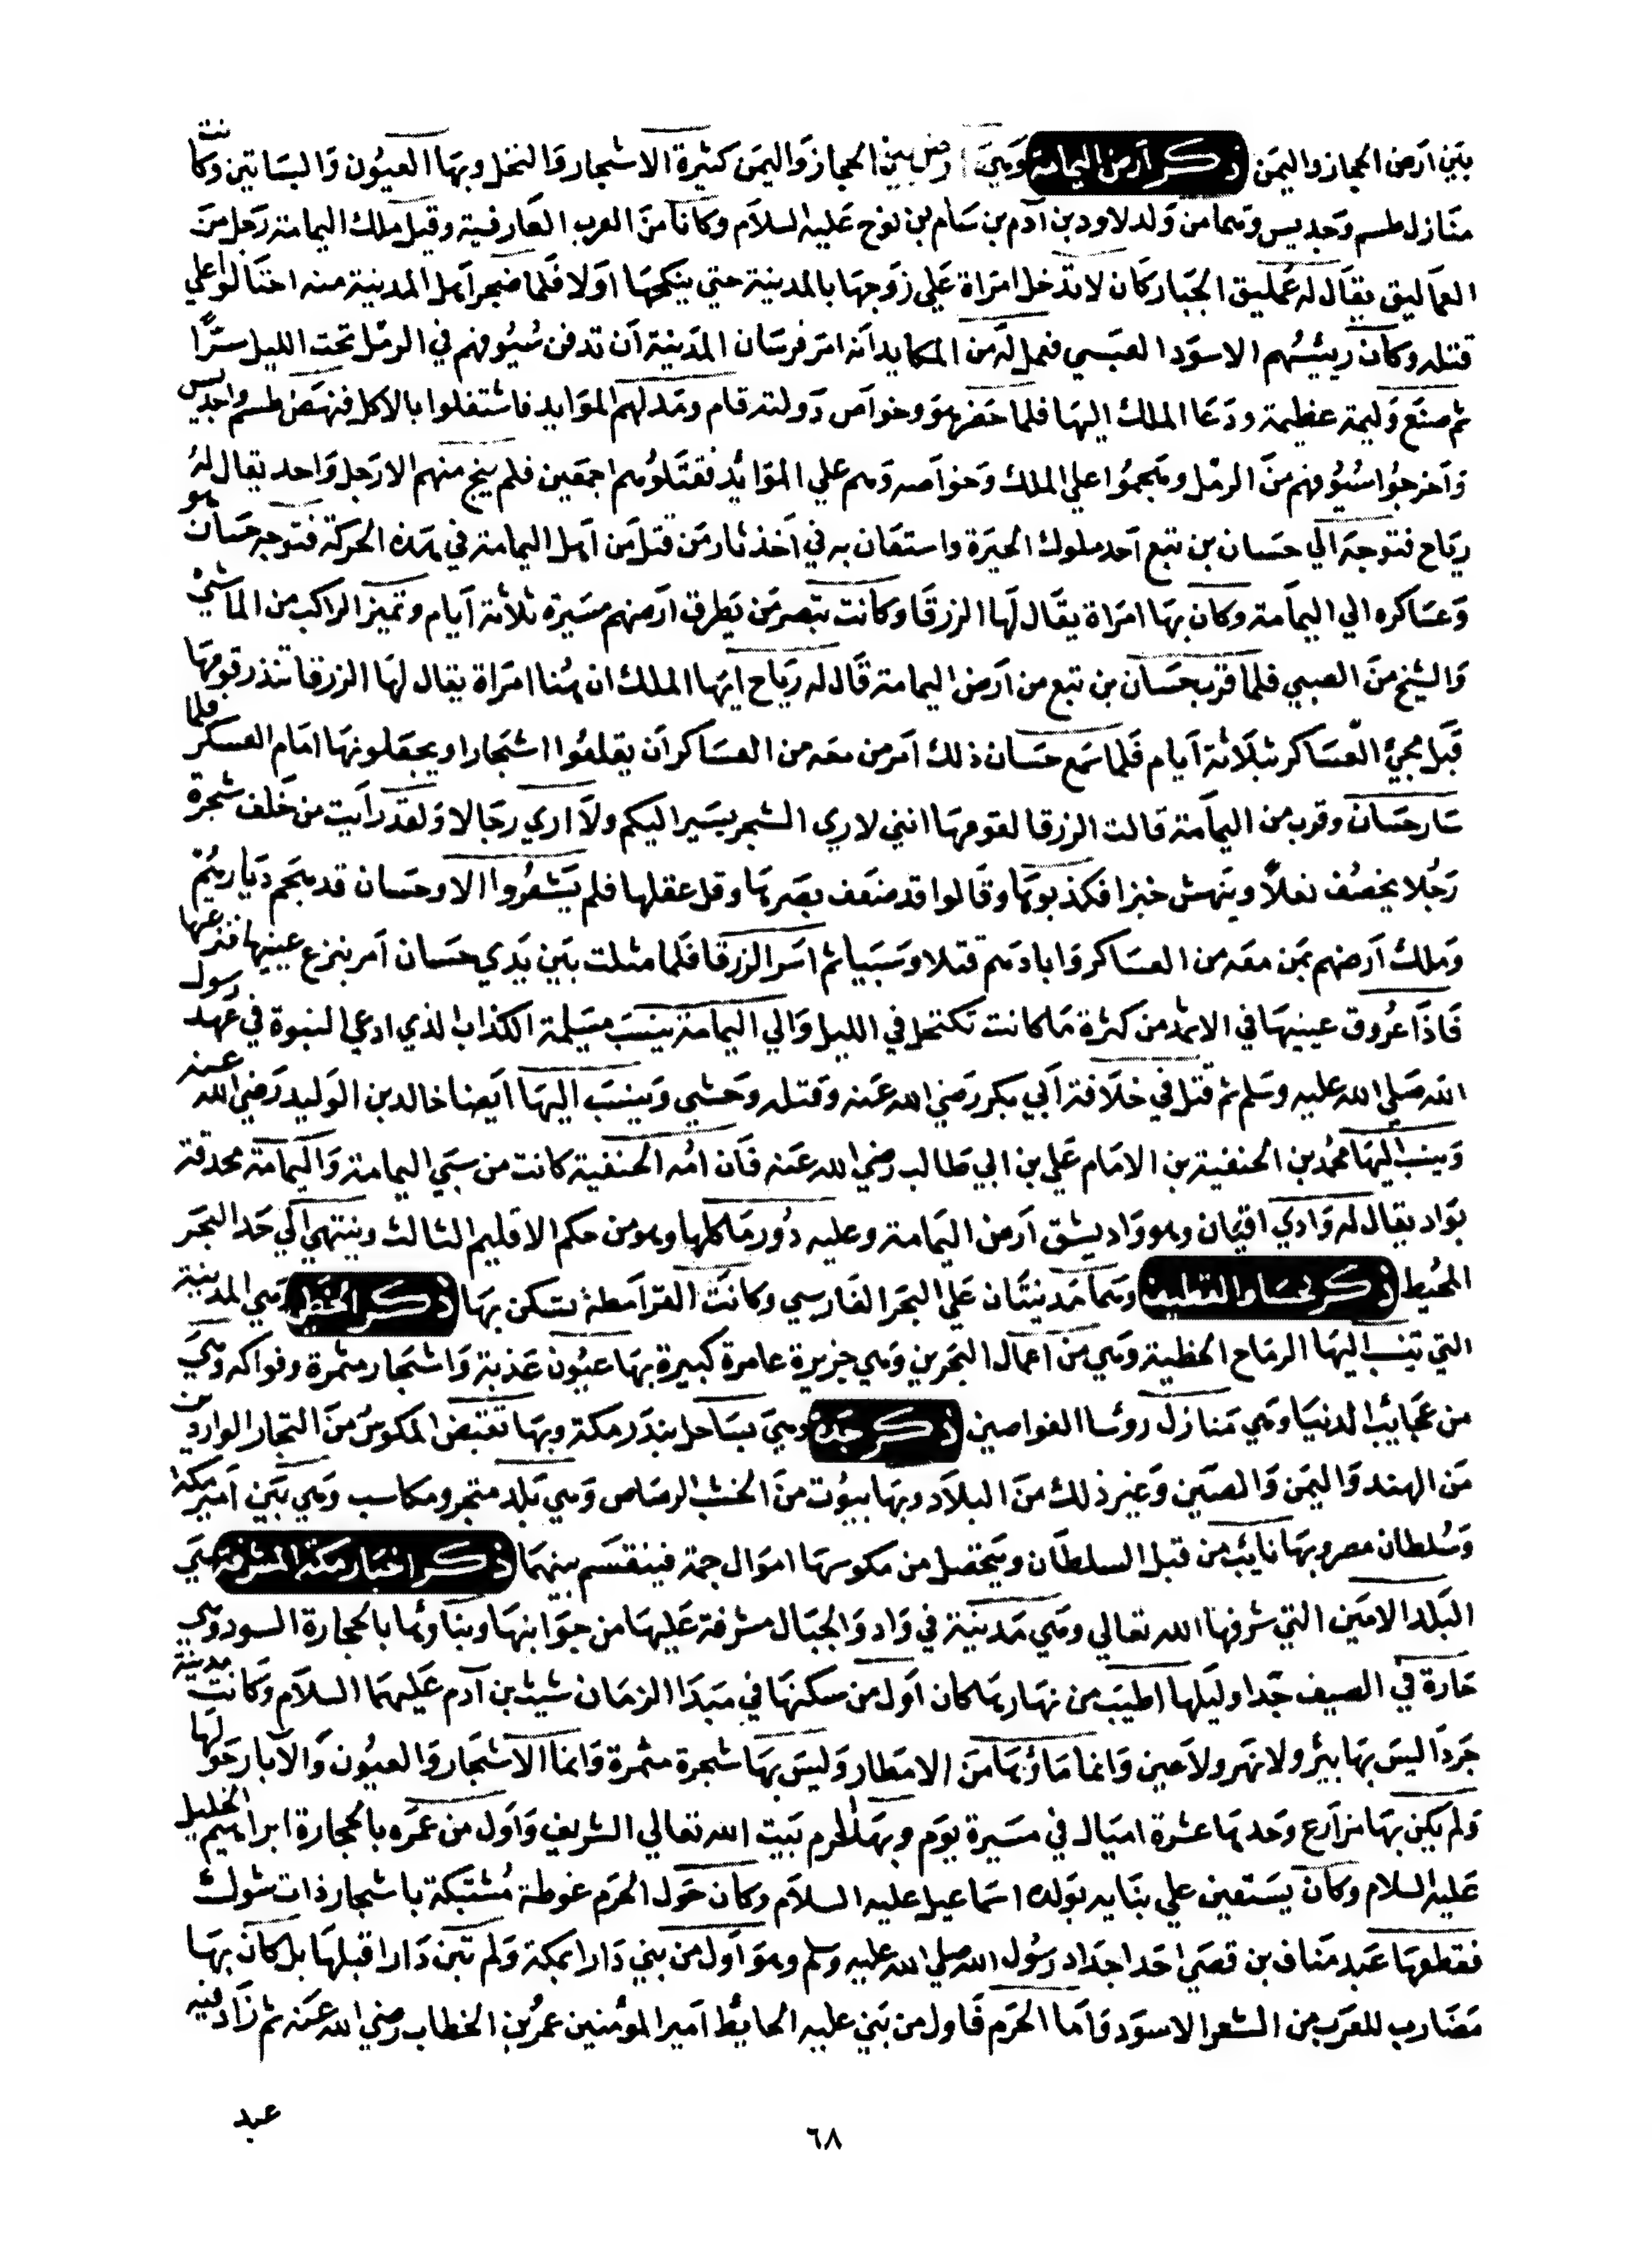 بين ارض الحجاز واليمن ذكر ارض اليمامة وهي ارض بين الحجاز واليمن كثيرة الاشجار والنخل وبها العيون والبساتين وكانت
منازل طسم وجديس وهما من ولد لاود بن آدم بن سام بن نوح عليه السلام وكانا من العرب العارفية وقيل ملك اليمامة رجل من
العماليق يقال له عمليق الجبار كان لا تدخل امراة علي زوجها بالمدينة حتي ينكحها اولا فلما ضجر اهل المدينة منه احتالوا علي
قتله وكان رييسهم الاسود العبسي فعمل له من المكايد انه امر فرسان المدينة ان تدفن سيوفهم في الرمل تحت الليل سترا
ثم صنع وليمة عظيمة ودعا الملك اليها فلما حضر هو وخواص دولته قام ومد لهم الموايد فاشتغلوا بالاكل فنهض طسم واجديس
واخرجوا سيوفهم من الرمل وهجموا علي الملك وخواصه وهم علي الموائد فقتلوهم اجمعين فلم ينج منهم الا رجل واحد يقال له
رياح فتوجه الي حسان بن تبع احد ملوك الحيرة واستعان به في اخذ ثار من قتل من اهل اليمامة في هذه الحركة فتوجه حسان هو
وعساكره الي اليمامة وكان بها امراة يقال لها الزرقا وكانت تبصر من يطرق ارضهم مسيرة ثلاثة ايام وتميز الراكب من الماشي
والشيخ من الصبي فلما قرب حسان بن تبع من ارض اليمامة قال له رياح ايها الملك ان هنا امراة يقال لها الزرقا تنذر قومها
قبل مجئ العساكر بثلاثة ايام فلما سمع حسان ذلك امر من معه من العساكر ان يقلعوا اشجارا ويجعلونها امام العسكر فلما
سار حسان وقرب من اليمامة قالت الزرقا لقومها انني لاري الشجر يسير اليكم ولا اري رجالا ولقد رايت من خلف شجرة
رجلا يخصف نعلا وينهش خبزا فكذبوها وقالوا قد ضعف بصرها وقل عقلها فلم يشعروا الا وحسان قد هجم ديارهم
وملك ارضهم بمن معه من العساكر وابادهم قتلا وسبيا ثم اسر الزرقا فلما مثلت بين يدي حسان امر بنزع عينيها فنزعها
فاذا عروق عينيها في الاثمد من كثرة ما كانت تكتحل في الليل والي اليمامة ينسب مسيلمة الكذاب الذي ادعي النبوة في عهد رسول
الله صلي الله عليه وسلم ثم قتل في خلافة ابي بكر رضي الله عنه وقتله وحشي وينسب اليها ايضا خالد بن الوليد رضي الله عنه
وينسب اليها محمد بن الحنفية بن الامام علي بن ابي طالب رضي الله عنه فان امه الحنفية كانت من سبي اليمامة واليمامة محدقة
بواد يقال له وادي اقيان وهو واد يشق ارض اليمامة وعليه دورها كلها وهو من حكم الاقليم الثالث وينتهي الي حد البحر
المحيط ذكر لحسا والقطيف وهما مدينتان علي البحر الفارسي وكانت القرامطة تسكن بها ذكر الخط وهي المدينة
التي تنسب اليها الرماح الخطية وهي من اعمال البحرين وهي جزيرة عامرة كبيرة بها عيون عذبة واشجار مثمرة وفواكه وهي
من عجايب الدنيا وهي منازل روسا الغواصين ذكر جدة وهي بساحل بندر مكة وبها تقبض المكوس من التجار الواردين
من الهند واليمن والصين وغير ذلك من البلاد وبها بيوت من الخشب الرصاص وهي بلد متجر ومكاسب وهي بين امير مكة
وسلطان مصر وبها نايب من قبل السلطان ويتحصل من مكوسها اموال جمة فينقسم بينهما ذكر اخبار مكة المشرفة هي
البلد الامين التي شرفها الله تعالي وهي مدينة في واد والجبال مشرفة عليها من جوانبها وبناوئها بالحجارة السود وهي
حارة في الصيف جدا وليلها اطيب من نهارها كان اول من سكنها في مبدا الزمان شيث بن آدم عليهما السلام وكانت مدينة
جردا ليس بها بير ولا نهر ولا عين وانما ماؤها من الامطار وليس بها شجرة مثمرة وانما الاشجار والعيون والابار حولها
ولم يكن بها مزارع وحدها عشرة اميال في مسيرة يوم وبها الحرم بيت الله تعالي الشريف واول من عمره بالحجارة ابراهيم الخليل
عليه السلام وكان يستعين علي بنايه بولده اسماعيل عليه السلام وكان حول الحرم غوطة مشتبكة باشجار ذات شوك
فقطعها عبد مناف بن قصي احد اجداد رسول الله صلي الله عليه وسلم وهو اول من بني دارا بمكة ولم تبن دارا قبلها بل كان بها
مضارب للعرب من الشعر الاسود واما الحرم فاول من بني عليه الحايط امير المؤمنين عمر بن الخطاب رضي الله عنه ثم زاد فيه
عبد
٦٨